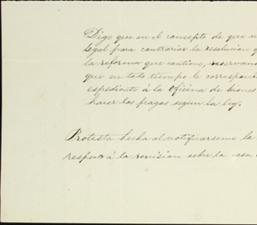 Digo que en el concepto de que no
legal para contrariar la resolucion q
la reforma que contiene, reservando
que en todo tiempo le correspond
expediente á la Oficina de bienes
hacer los pagos segun la ley.
Protesta hecha al notificarseme la
respecto á la remision sobre la